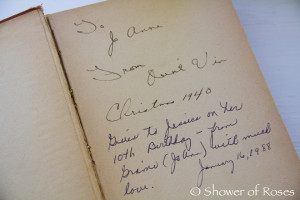 To
Jo Anne
From
Aunt Vin
Christmas 1940
Given to Jessica on her
10th Birthday - from
Grama (JoAnn) with much
love. January 16, 1988
© Shower of Roses